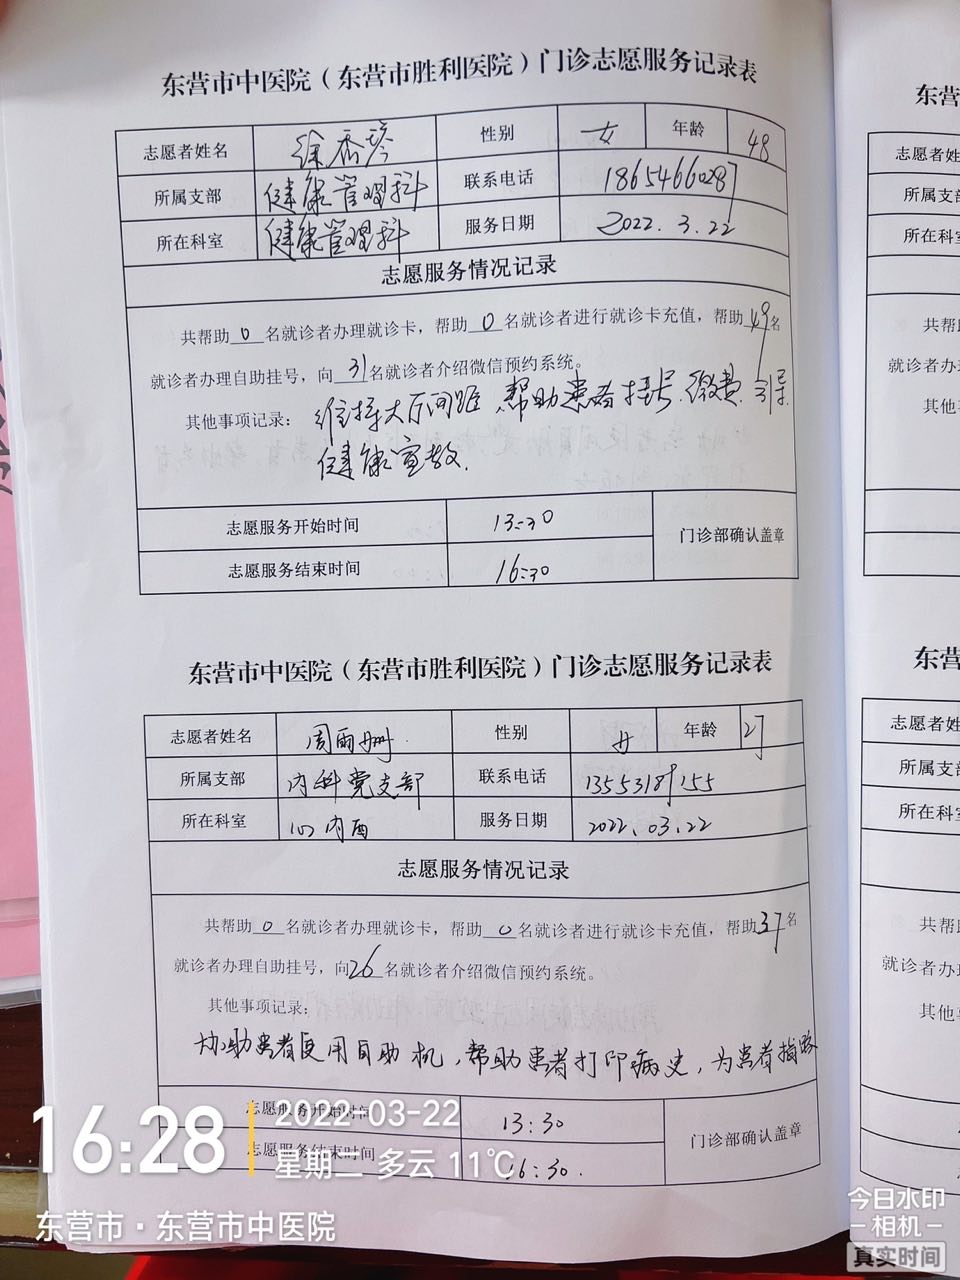 东营市中医院（东营市胜利医院）门诊志愿服务记录表
志愿者姓名 徐香琴 性别 女 年龄 48
所属支部 健康管理科 联系电话 18654660287
所在科室 健康管理科 服务日期 2022.3.22
志愿服务情况记录
共帮助 0 名就诊者办理就诊卡，帮助 0 名就诊者进行就诊卡充值，帮助 49 名
就诊者办理自助挂号，向 31 名就诊者介绍微信预约系统。
其他事项记录： 维持大厅间距、帮助患者挂号.缴费.引导.
健康宣教.
志愿服务开始时间 13:30
门诊部确认盖章
志愿服务结束时间 16:30
东营市中医院（东营市胜利医院）门诊志愿服务记录表
志愿者姓名 周雨珊 性别 女 年龄 27
所属支部 内科党支部 联系电话 13553189155
所在科室 心内西 服务日期 2022.03.22
志愿服务情况记录
共帮助 0 名就诊者办理就诊卡，帮助 0 名就诊者进行就诊卡充值，帮助 37 名
就诊者办理自助挂号，向 26 名就诊者介绍微信预约系统。
其他事项记录：
协助患者使用自助机，帮助患者打印病史，为患者指路
志愿服务开始时间 13:30
门诊部确认盖章
志愿服务结束时间 16:30.
16:28
2022-03-22
星期二 多云 11℃
东营市·东营市中医院
今日水印
-相机-
真实时间
东营
志愿者姓
所属支部
所在科
共帮
就诊者办
其他
东营
志愿者姓
所属支
所在科
共帮
就诊者办
其他